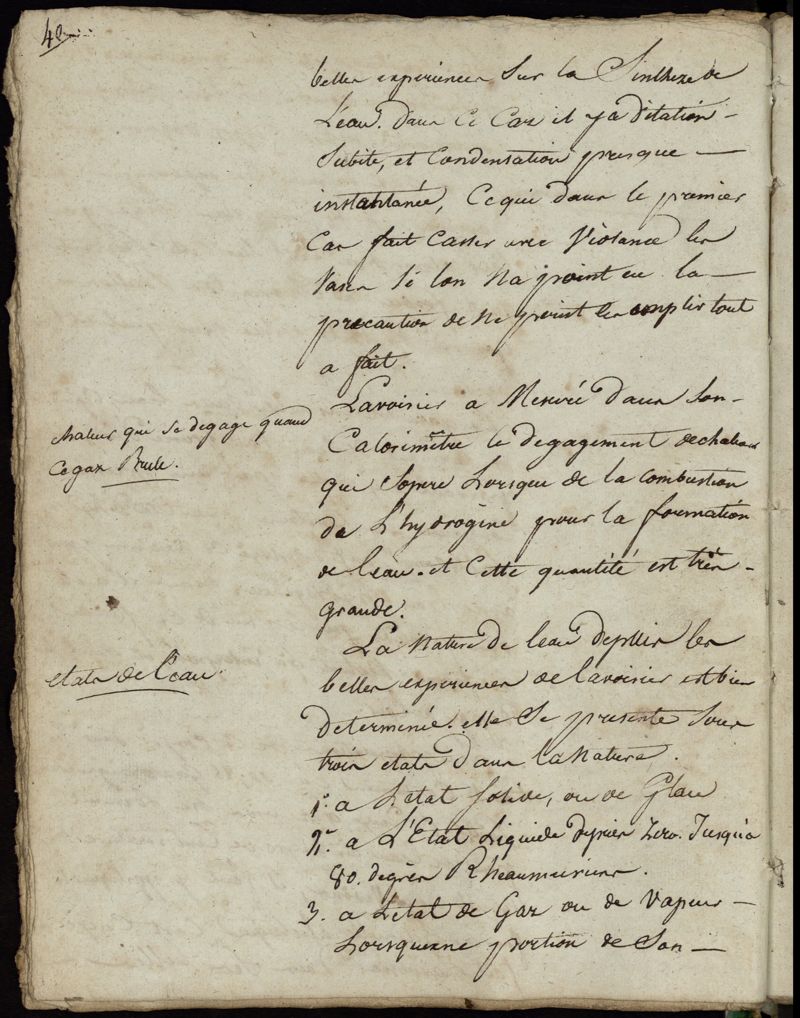 belles experiences sur la Sintheze de
L'eau. dans ce Cas il y a ditation
Subite, et Condensation presque
instantanée, Ce qui dans le premier
Cas fait Casser avec Violance les
Vases Si lon Na point eu la
precaution de Ne point les emplir tout
a fait.
Lavoisier a Mesuré dans Son
Chaleur qui Se degage quand
Ce gaz Brule.
Calorimêtre le degagement de chaleur
qui Sopere Lorsque de la Combustion
de L'hydrogène pour la formation
de leau. et Cette quantité est très
grande.
La Nature de leau depuis les
etats de l'eau.
belles experiences de lavoisier est bien
determinée. elle Se presente Sous
trois etats dans la Nature.
1°. a Letat Solide, ou de Glace
2°. a L'Etat Liquide depuis Zero. Jusqua
80. degrés Rheaumuriens.
3. a Letat de Gaz ou de Vapeur
Lorsqu'une portion de Son